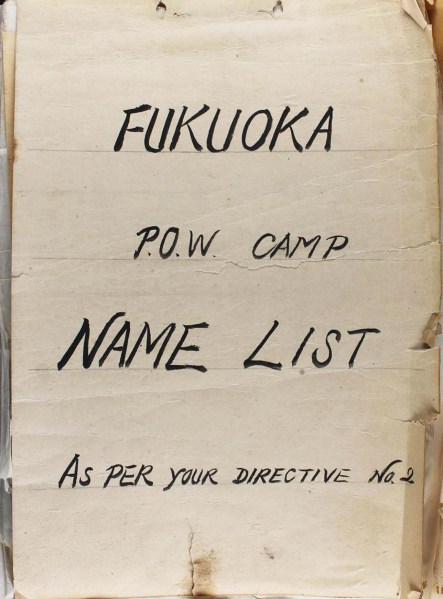 FUKUOKA
P.O.W. CAMP
NAME LIST
AS PER YOUR DIRECTIVE No. 2